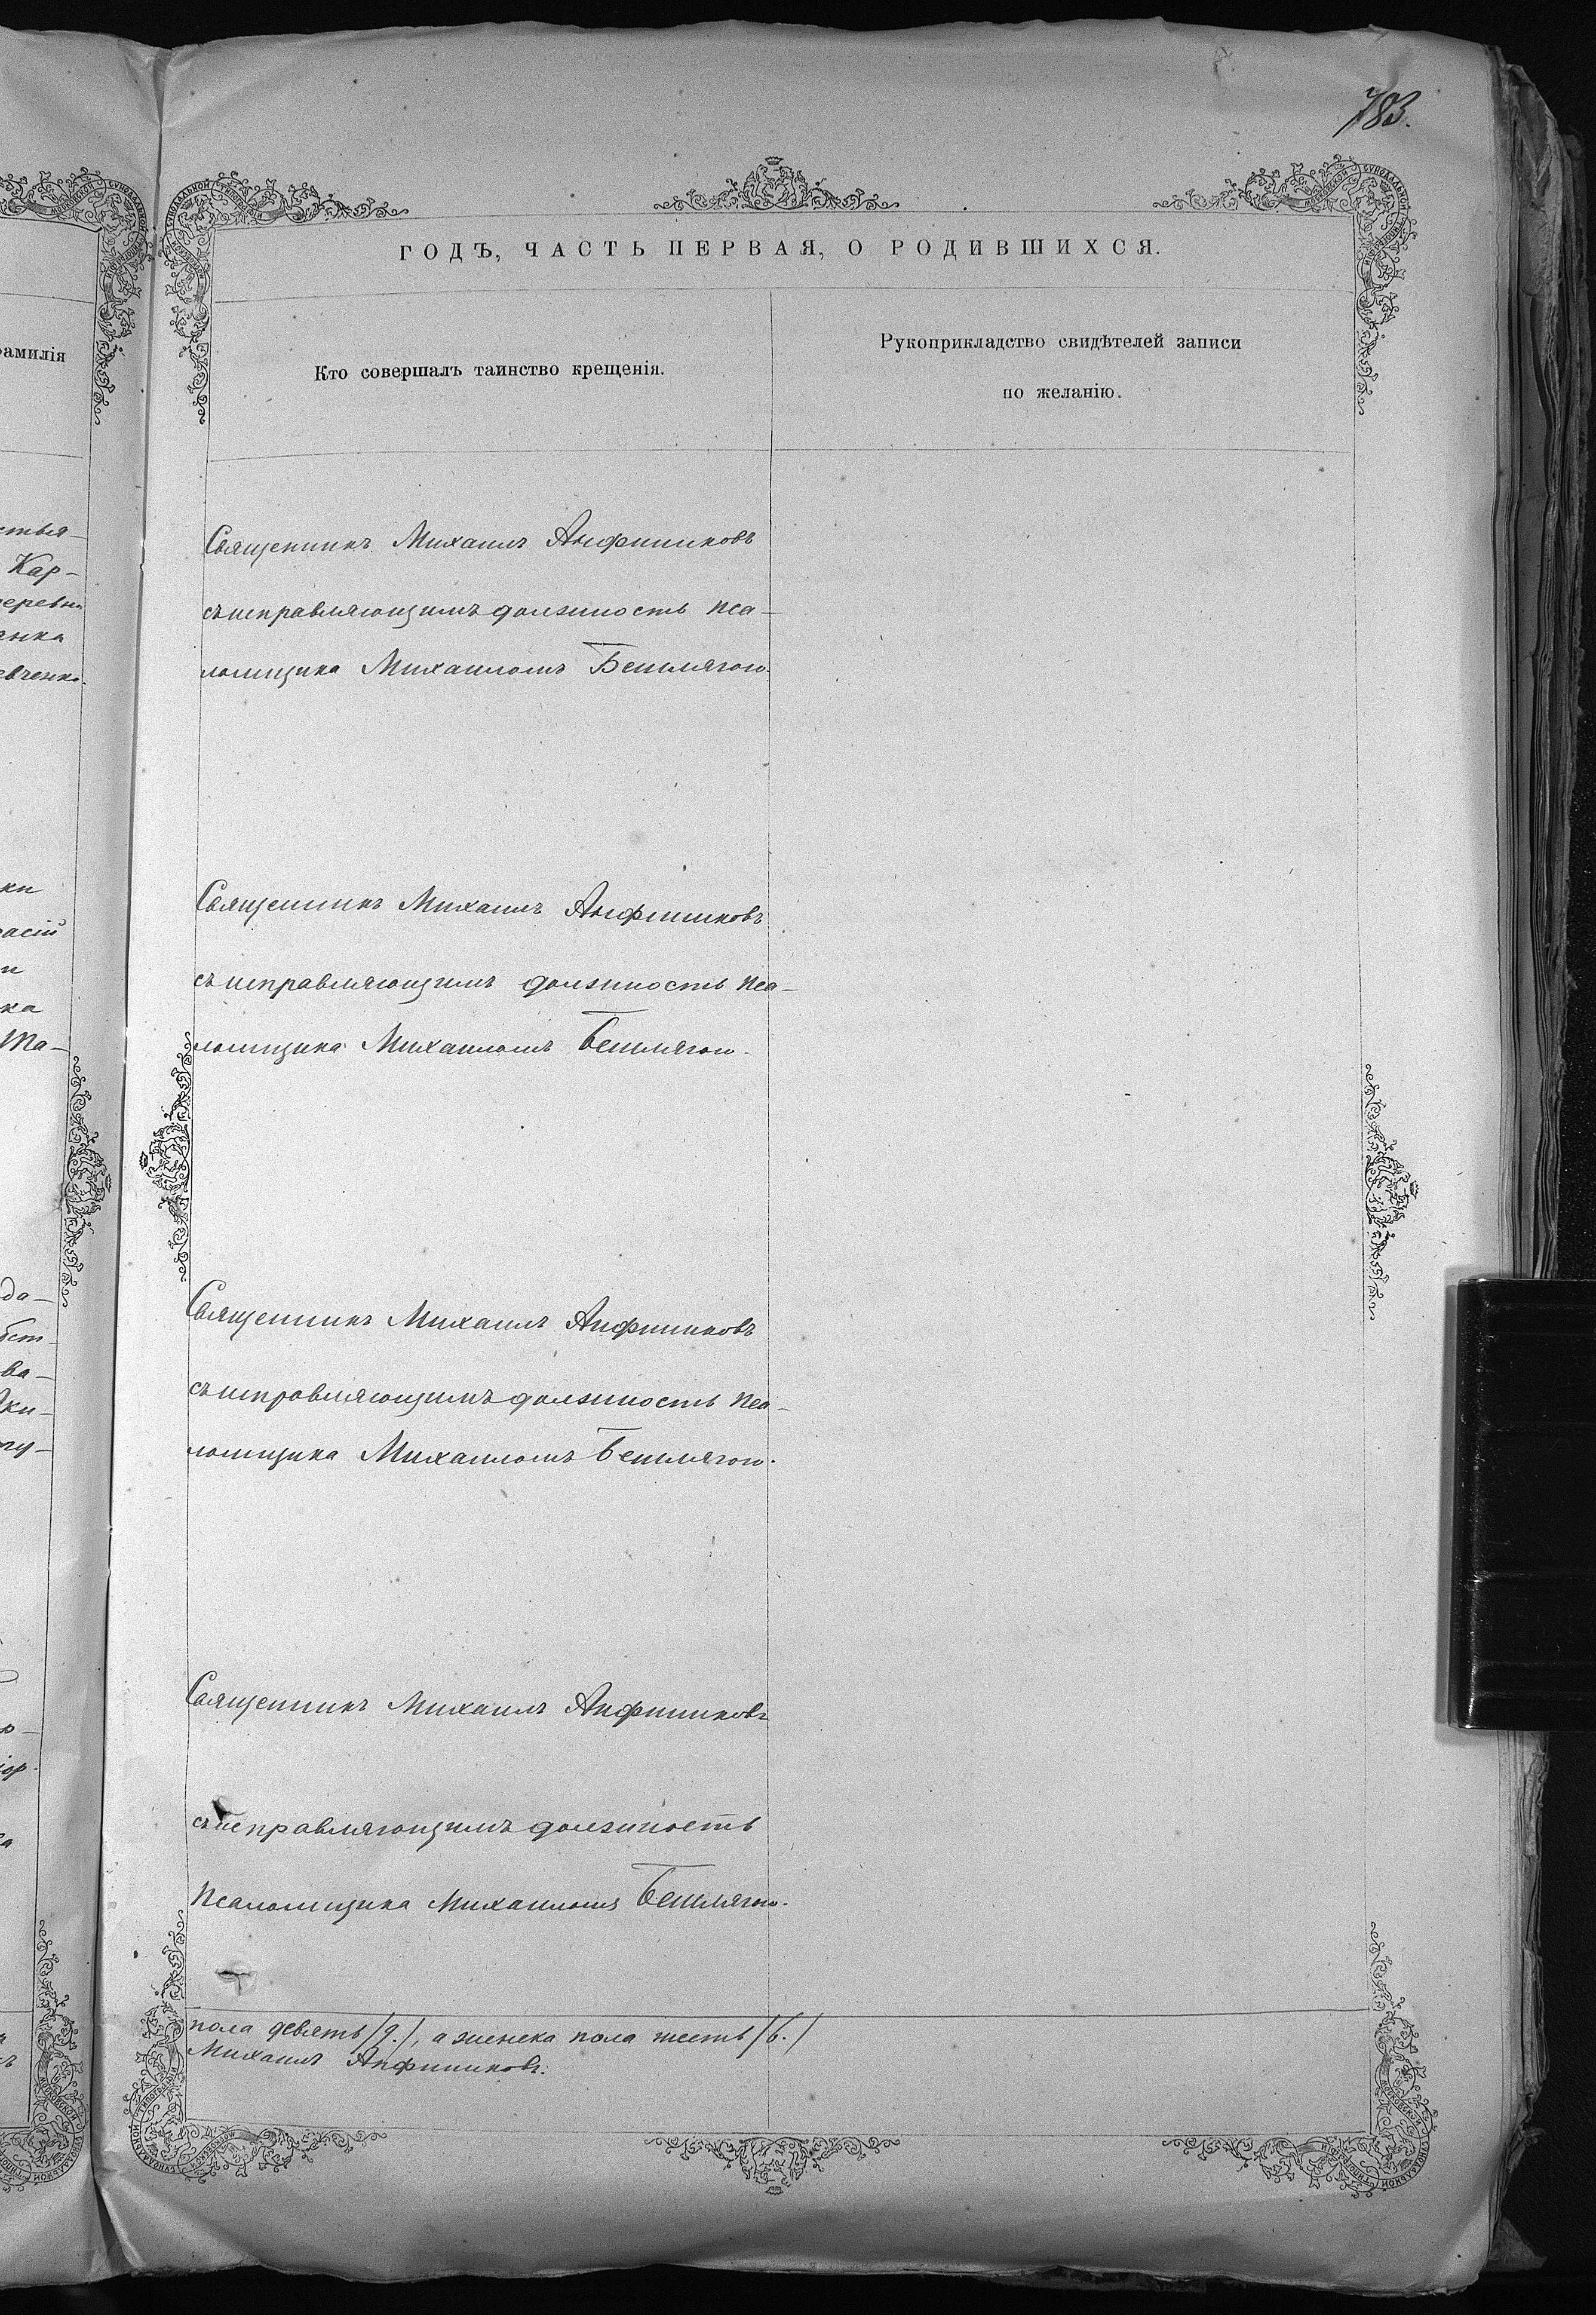 783.
ГОДЪ, ЧАСТЬ ПЕРВАЯ, О РОДИВШИХСЯ.
амилія
Кто совершалъ таинство крещенія.
Рукоприкладство свидѣтелей записи
по желанію.
Священникъ Михаилъ Анфиниковъ
съ исправляющимъ должность пса-
ломщика Михаиломъ Бешлягою.
Священникъ Михаилъ Анфиниковъ
съ исправляющимъ должность пса-
ломщика Михаиломъ Бешлягою.
Священникъ Михаилъ Анфиниковъ
съ исправляющимъ должность пса-
ломщика Михаиломъ Бешлягою.
Священникъ Михаилъ Анфиниковъ
съ исправляющимъ должность
псаломщика Михаиломъ Бешлягою.
пола девять /9./, а женска пола шесть /6./
Михаилъ Анфиниковъ.